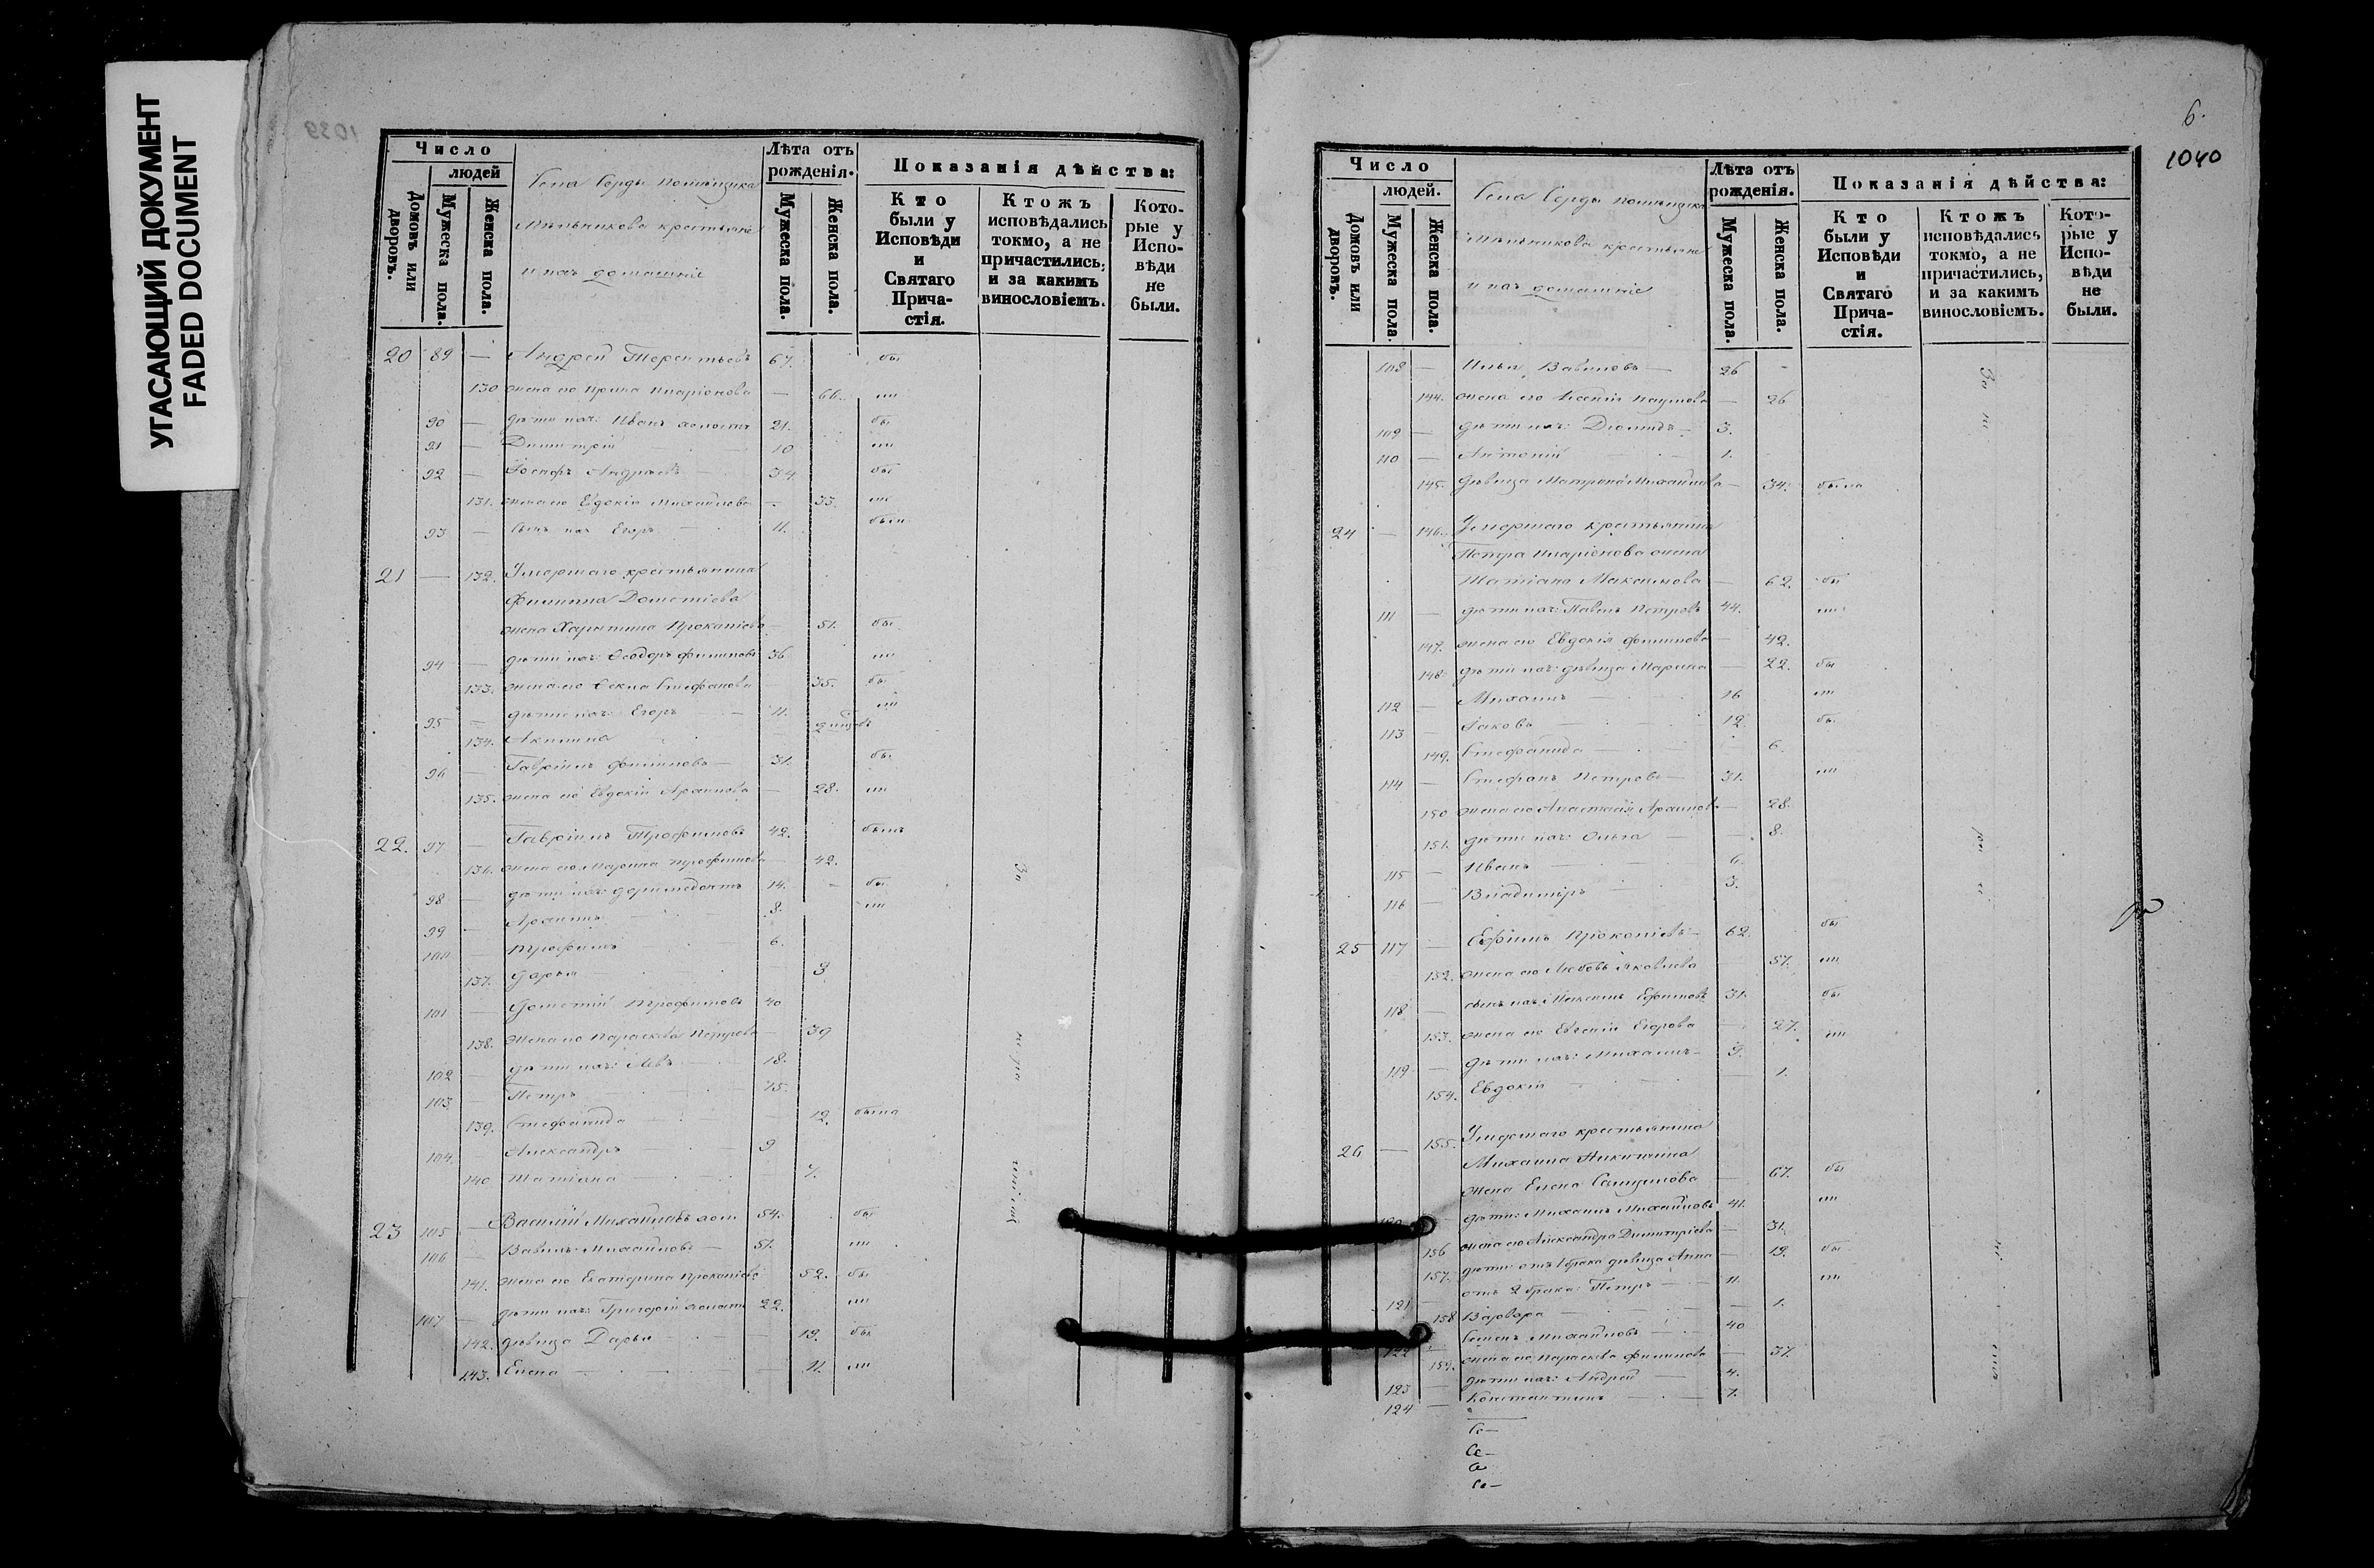 УГАСАЮЩИЙ ДОКУМЕНТ
FADED DOCUMENT
1039
Число
людей
Домовъ или дворовъ.
Мужеска пола.
Женска пола.
Села Серды помѣщика
Мельникова крестьяне
и ихъ домашніе
Лѣта отъ рожденія.
Мужеска пола.
Женска пола.
Показанія дѣйства:
Кто были у Исповѣди и Святаго Причастія.
Ктожъ исповѣдались токмо, а не причастились, и за какимъ винословіемъ.
Которые у Исповѣди не были.
20 89 — Андрей Терентьевъ 67. бы
130 жена его Ирина Иларіонова — 66. ли
90 — дѣти ихъ: Иванъ холостъ 21. бы
91 — Димитрій — 10 ли
92 — Іосифъ Андреевъ 34 бы
131. жена его Евдокія Михайлова — 33. ли
93 — сынъ ихъ Егоръ — 11. были
21 — 132. Умершаго крестьянина
Филиппа Дометіева
жена Харитина Прокопіева — 51. бы
94 — дѣти ихъ: Ѳеодоръ Филиповъ 36 ли
133. жена его Ѳекла Стефанова — 35. бы
95 — дѣти ихъ: Егоръ — 11. ли
134. Акилина
96 — Гавріилъ Филиповъ — 31. бы
135. жена его Евдокія Архипова — 28. ли
22. 97 — Гавріилъ Трофимовъ 42. былъ
136. жена его Марина Трофимова — 42.
98 — дѣти ихъ: Доримедонтъ 14. — бы
99 — Архипъ — 8. ли
100 — Трофимъ — 6.
137. Дарья — 3
101 — Дометій Трофимовъ 40
138. жена его Параскева Петрова — 39
102 — дѣти ихъ: Левъ — 18.
103 — Петръ — 15.
139. Стефанида — 12. была
104. — Александръ 9
140 Татіана — 7.
23 105 — Василій Михайловъ хол. 54. бы
106 — Вавилъ Михайловъ — 51. ли
141. жена его Екатерина Прокопіева 52. бы
107 — дѣти ихъ: Григорій холостъ 22. ли
142. дѣвица Дарья — 19. бы
143. Елена — 11. ли
За
6.
1040
Число
людей.
Домовъ или дворовъ.
Мужеска пола.
Женска пола.
Села Серды помѣщика
Мельникова крестьяне
и ихъ домашніе
Лѣта отъ рожденія.
Мужеска пола.
Женска пола.
Показанія дѣйства:
Кто были у Исповѣди и Святаго Причастія.
Ктожъ исповѣдались токмо, а не причастились, и за какимъ винословіемъ.
Которые у Исповѣди не были.
108 — Илья Вавиловъ — 26 -
144. жена его Ксенія Наумова — 26
109 — дѣти ихъ: Діомидъ — 3.
110 — Антоній — 1.
145. дѣвица Матрона Михайлова — 34. была
24 — 146. Умершаго крестьянина
Петра Иларіонова жена
Татіана Максимова — 62. бы
111 — дѣти ихъ: Павелъ Петровъ 44. ли
147. жена его Евдокія Филипова — 42.
148. дѣти ихъ: дѣвица Марина — 22. бы
112 — Михаилъ — 16 ли
113 — Іаковъ — 12. бы
149. Стефанида — 6.
114 — Стефанъ Петровъ — 31. ли
150 жена его Анастасія Архипова — 28.
151. дѣти ихъ: Ольга — 8.
115 — Иванъ — 6.
116 — Владиміръ — 3.
25 117 — Ефимъ Прокопіевъ — 62. бы
152. жена его Любовь Яковлева — 57. ли
118 — сынъ ихъ Максимъ Ефимовъ 31. бы
153. жена его Евгенія Егорова — 27. ли
119 — дѣти ихъ: Михаилъ — 9.
154. Евдокія — 1.
26 — 155. Умершаго крестьянина
Михаила Никитина
жена Елена Самуилова — 67. бы
120 — дѣти: Михаилъ Михайловъ 41. ли
156 жена его Александра Димитріева — 31.
157. дѣти: отъ 1 брака дѣвица Анна — 19. бы
121 отъ 2 брака: Петръ — 11. ли
158 Варвара — 1.
122 — Семенъ Михайловъ — 40
159. жена его Параскева Филипова — 37.
123 — дѣти ихъ: Андрей — 4.
124 — Константинъ — 1.
За